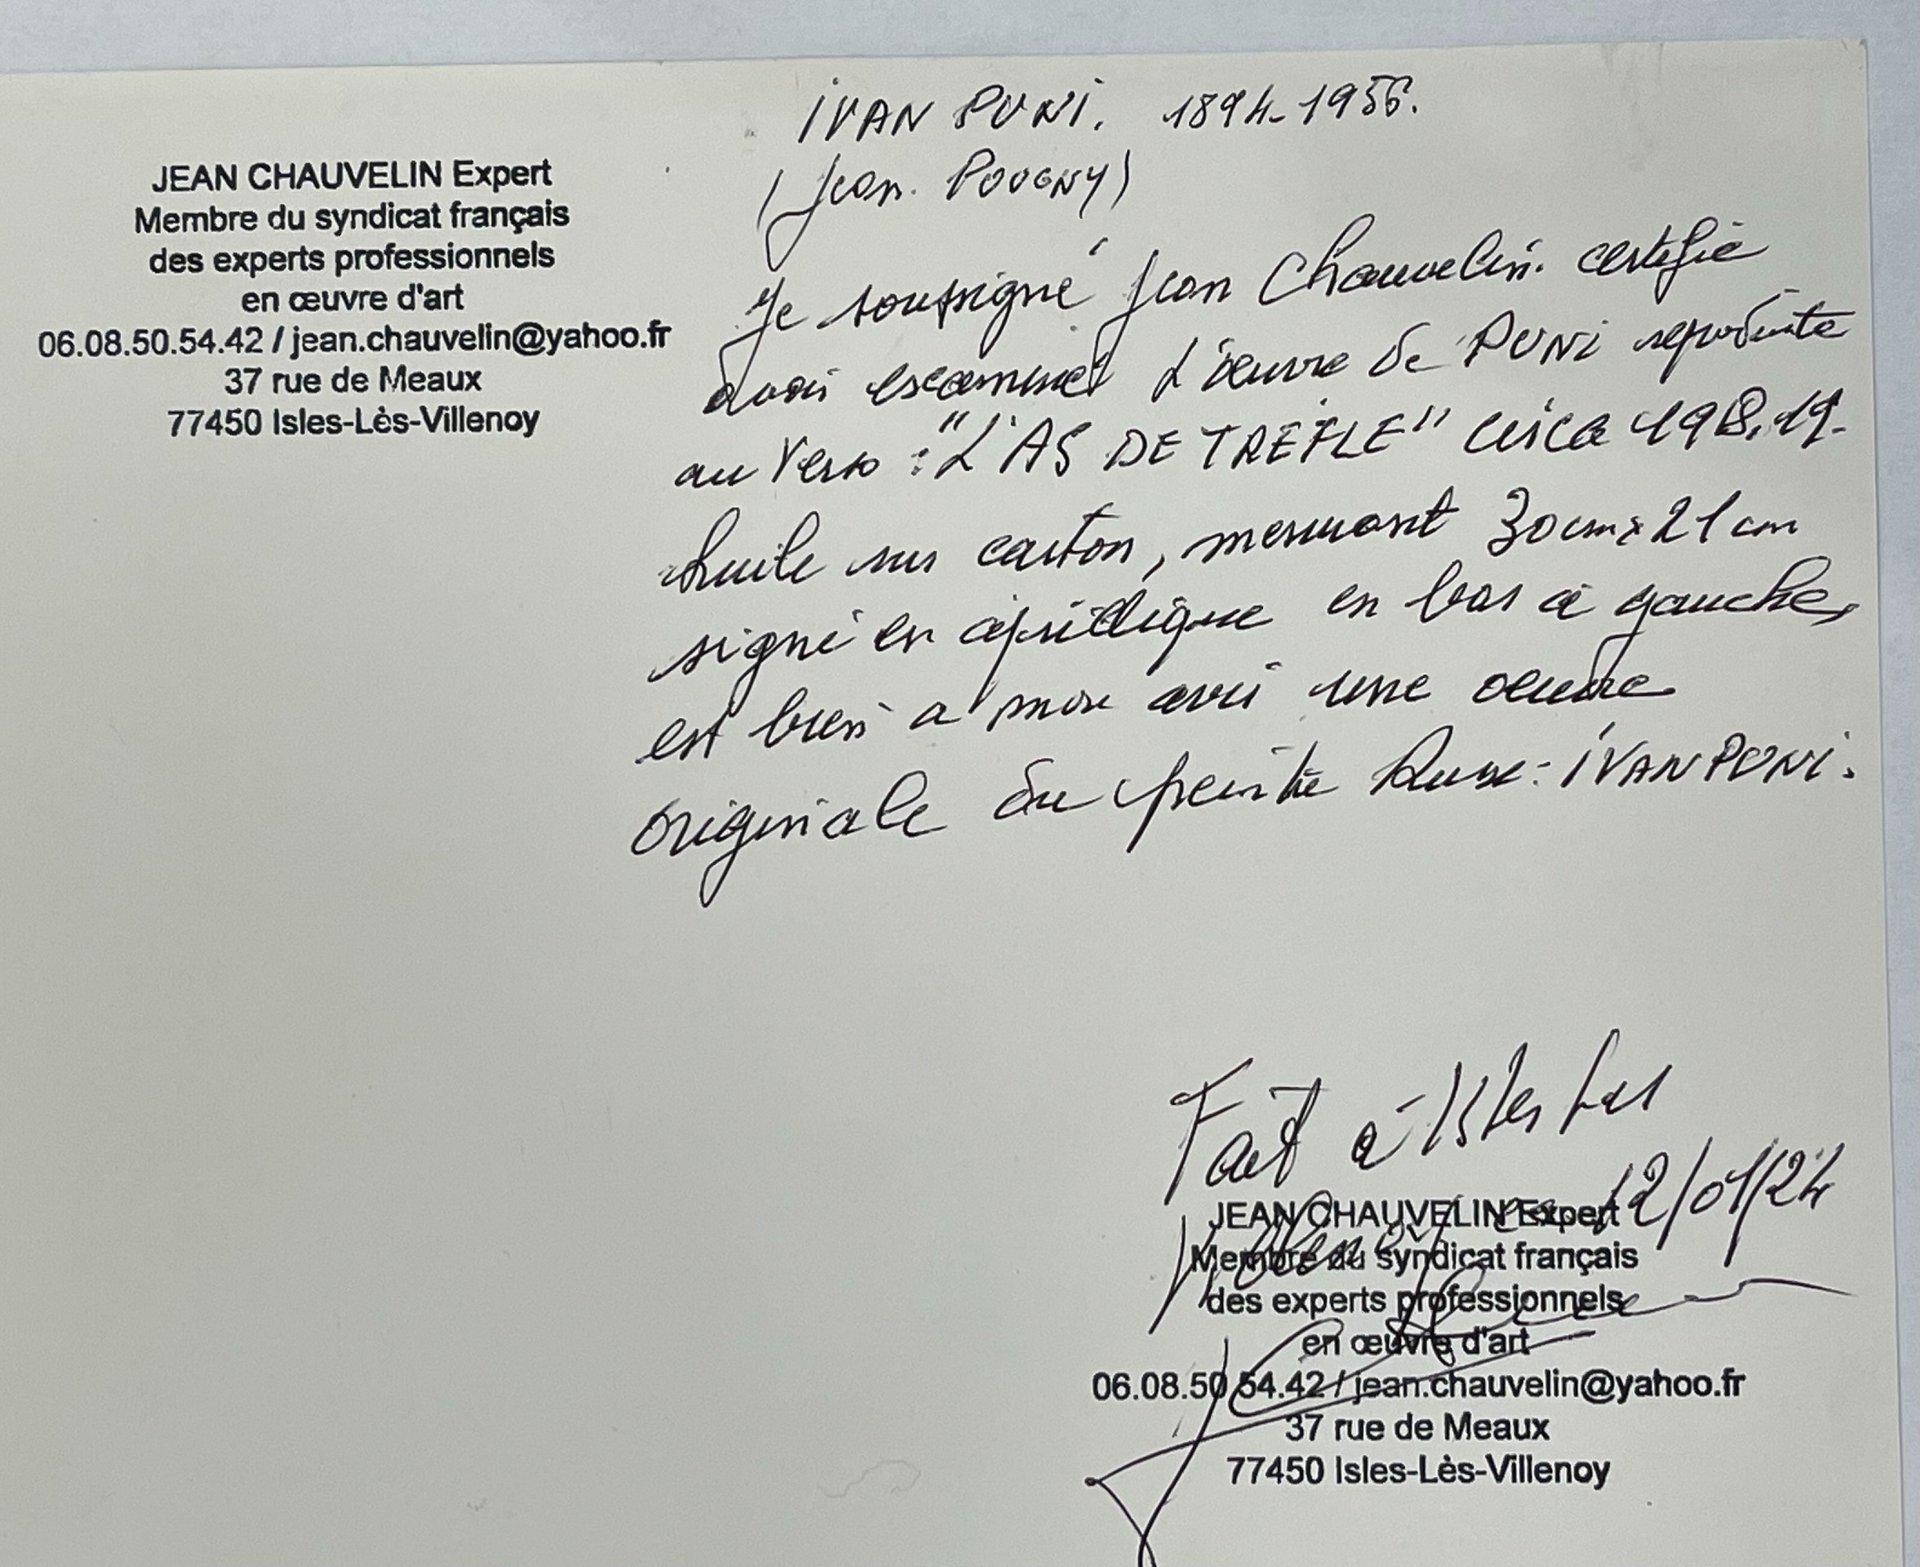 JEAN CHAUVELIN Expert
Membre du syndicat français
des experts professionnels
en œuvre d'art
06.08.50.54.42 / jean.chauvelin@yahoo.fr
37 rue de Meaux
77450 Isles-Lès-Villenoy
IVAN PUNI. 1894-1956.
(Jean. POUGNY)
Je soussigné Jean Chauvelin. certifie
avoir escaminet L'œuvre de PUNI reproduite
au Verso : "L'AS DE TRÈFLE" circa 1918.19.
huile sur carton, mesurant 30cm x 21 cm
signé en cyrillique en bas à gauche,
est bien a mon avis une oeuvre
originale du peintre Russe: IVAN PUNI.
Fait à Isles Les
Villenoy Le 12/01/24
JEAN CHAUVELIN Expert
Membre du syndicat français
des experts professionnels
en œuvre d'art
06.08.50.54.42 / jean.chauvelin@yahoo.fr
37 rue de Meaux
77450 Isles-Lès-Villenoy